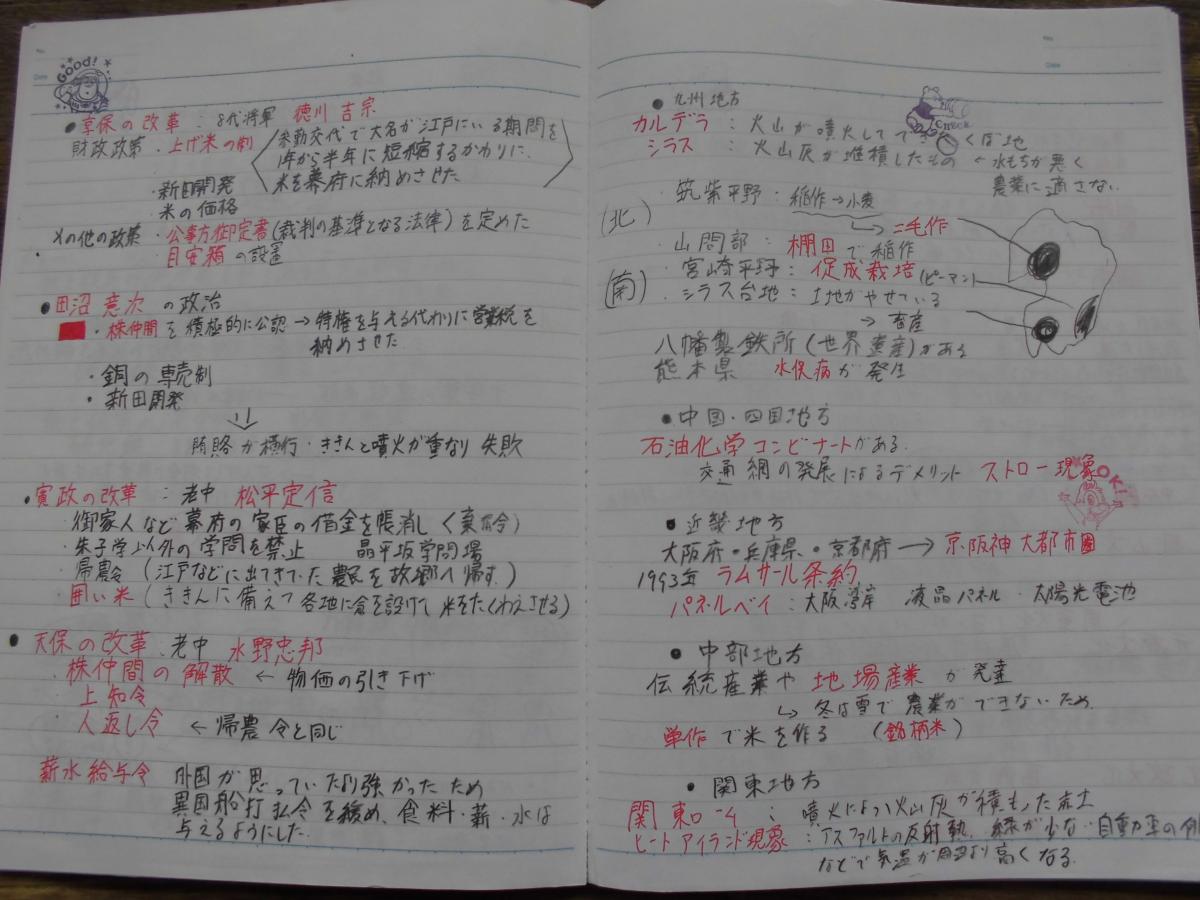 Good!
●享保の改革：8代将軍 徳川吉宗
財政政策・上げ米の制
参勤交代で大名が江戸にいる期間を
1年から半年に短縮するかわりに、
米を幕府に納めさせた
・新田開発
・米の価格
その他の政策・公事方御定書(裁判の基準となる法律)を定めた
目安箱の設置
●田沼意次の政治
・株仲間を積極的に公認→特権を与える代わりに営業税を
納めさせた
・銅の専売制
・新田開発
賄賂が横行・ききんと噴火が重なり失敗
・寛政の改革：老中 松平定信
・御家人など幕府の家臣の借金を帳消し(棄捐令)
・朱子学以外の学問を禁止 昌平坂学問場
・帰農令(江戸などに出てきていた農民を故郷へ帰す)
・囲い米(ききんに備えて各地に倉を設けて米をたくわえさせる)
●天保の改革：老中 水野忠邦
株仲間の解散←物価の引き下げ
上知令
人返し令←帰農令と同じ
薪水給与令 外国が思っていたより強かったため
異国船打払令を緩め、食料・薪・水は
与えるようにした。
●九州地方
CHECK
カルデラ：火山が噴火してできたくぼ地
シラス：火山灰が堆積したもの←水もちが悪く
農業に適さない
(北)
・筑紫平野：稲作→小麦
→二毛作
・山間部：棚田で稲作
(南)
・宮崎平野：促成栽培(ピーマン)
・シラス台地：土地がやせている
→畜産
八幡製鉄所(世界遺産)がある
熊本県 水俣病が発生
●中国・四国地方
石油化学コンビナートがある。
交通網の発展によるデメリット ストロー現象
OK!
●近畿地方
大阪府・兵庫県・京都府→京阪神大都市圏
1993年 ラムサール条約
パネルベイ：大阪湾岸 液晶パネル・太陽光電池
●中部地方
伝統産業や地場産業が発達
↳冬は雪で農業ができないため
単作で米を作る (銘柄米)
●関東地方
関東ローム：噴火によって火山灰が積もった赤土
ヒートアイランド現象：アスファルトの反射熱、緑が少ない、自動車の
などで気温が周辺より高くなる。